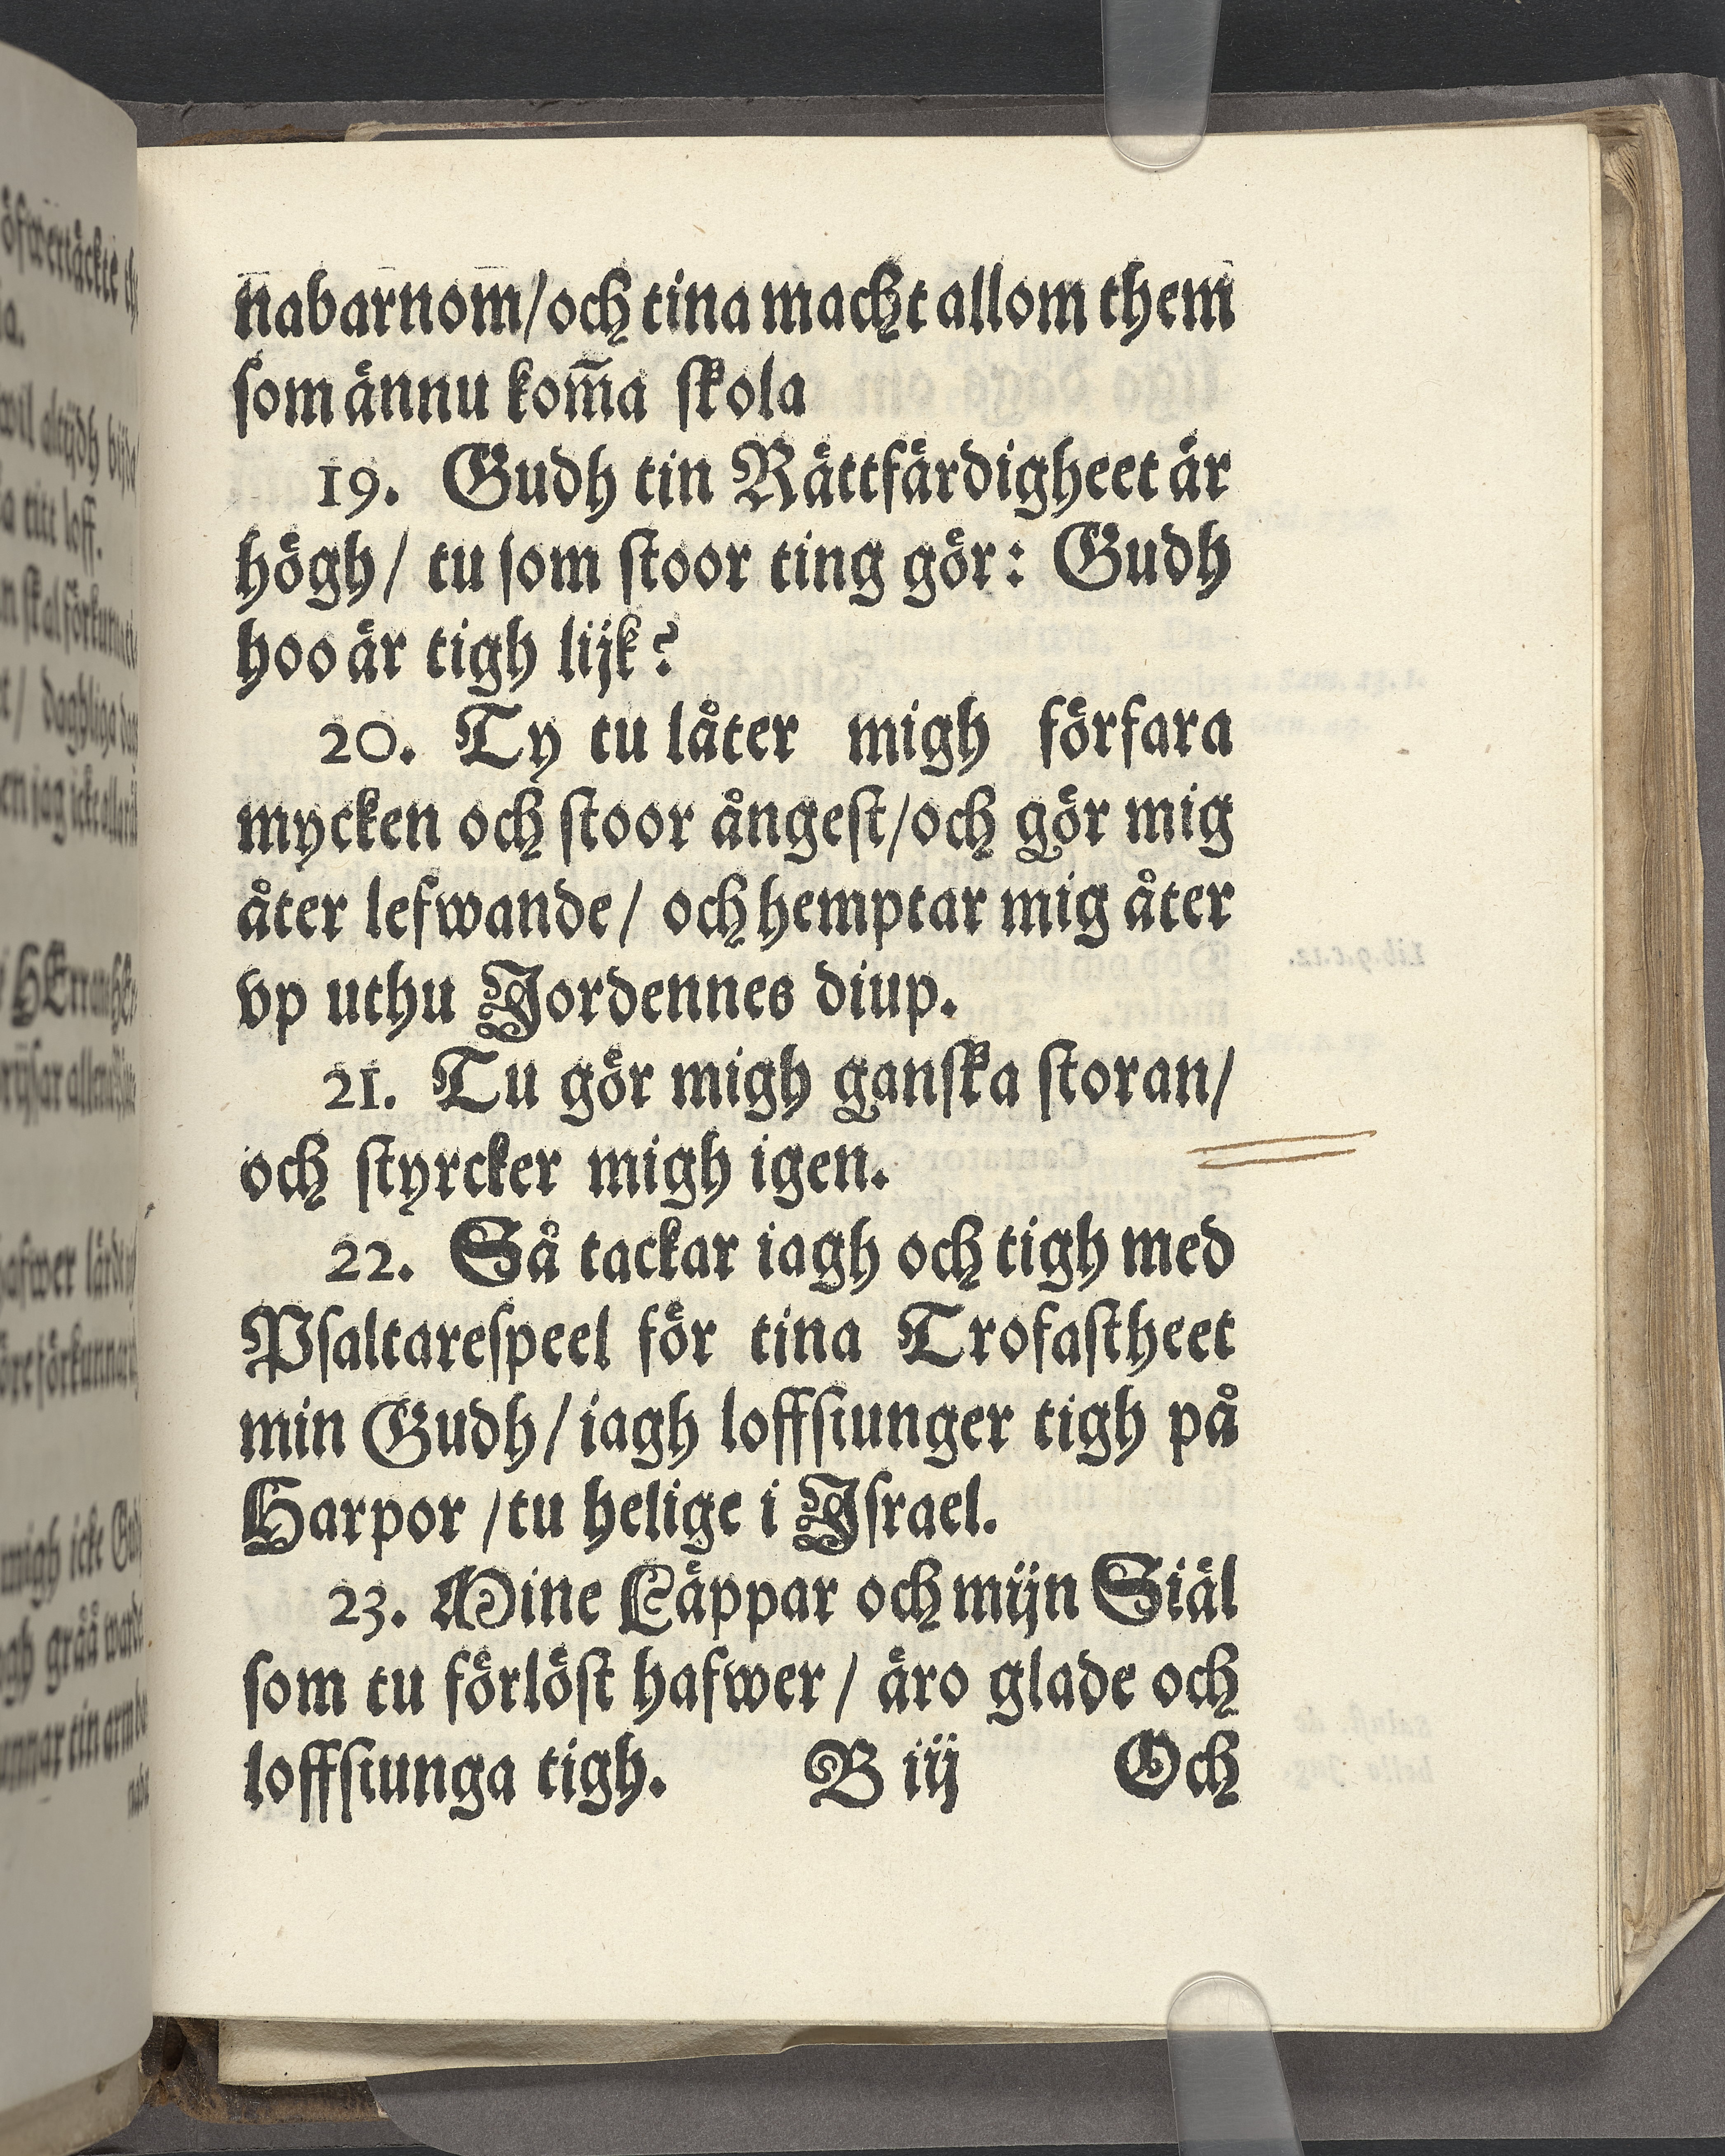 nabarnom/och tina macht allom them
som ännu kom̃a skola
19. Gudh tin Rättfärdigheet är
högh/ tu som stoor ting gör: Gudh
hoo är tigh lijk?
20. Ty tu låter migh förfara
mycken och stoor ångest/och gör mig
åter lefwande/ och hemptar mig åter
vp uthu Jordennes diup.
21. Tu gör migh ganska storan/
och styrcker migh igen.
22. Så tackar iagh och tigh med
Psaltarespeel för tina Trofastheet
min Gudh/iagh loffsiunger tigh på
Harpor /tu helige i Jsrael.
23. Mine Läppar och mijn Siäl
som tu förlöst hafwer/ äro glade och
loffsiunga tigh. B iij Och